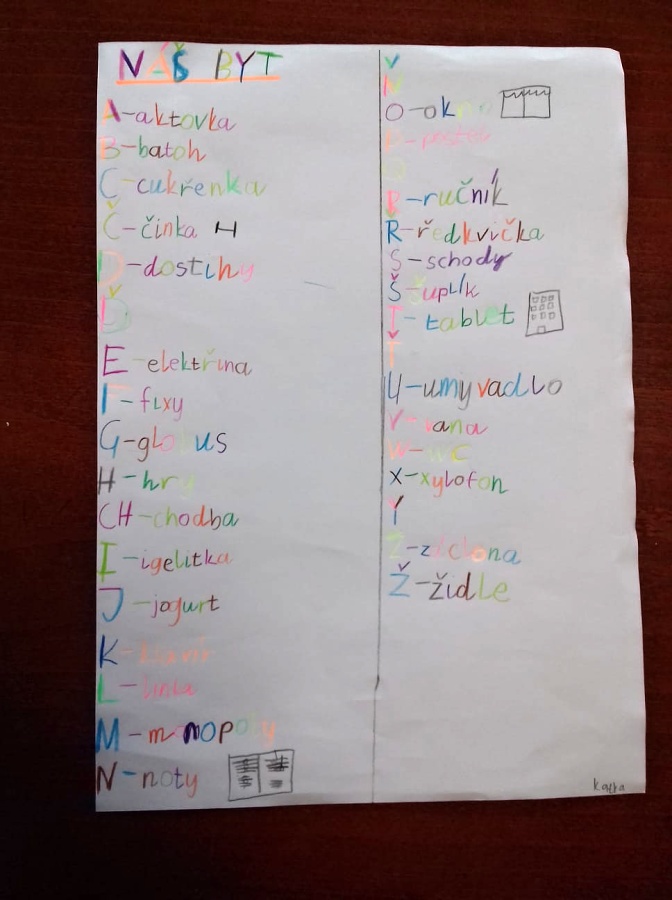 NÁŠ BYT
A-aktovka
B-batoh
C-cukřenka
Č-činka
D-dostihy
Ď
E-elektřina
F-fixy
G-globus
H-hry
CH-chodba
I-igelitka
J-jogurt
K-klavír
L-linka
M-monopoly
N-noty
Ň
O-okno
P-postel
Q
R-ručník
Ř-ředkvička
S-schody
Š-šuplík
T-tablet
Ť
U-umyvadlo
V-vana
W-WC
X-xylofon
Y
Z-záclona
Ž-židle
Katka